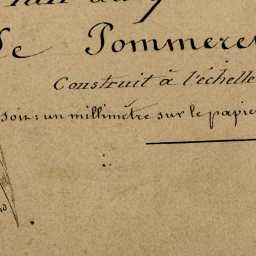 de Pommere
Construit à l'échelle
soit: un millimètre sur le papie